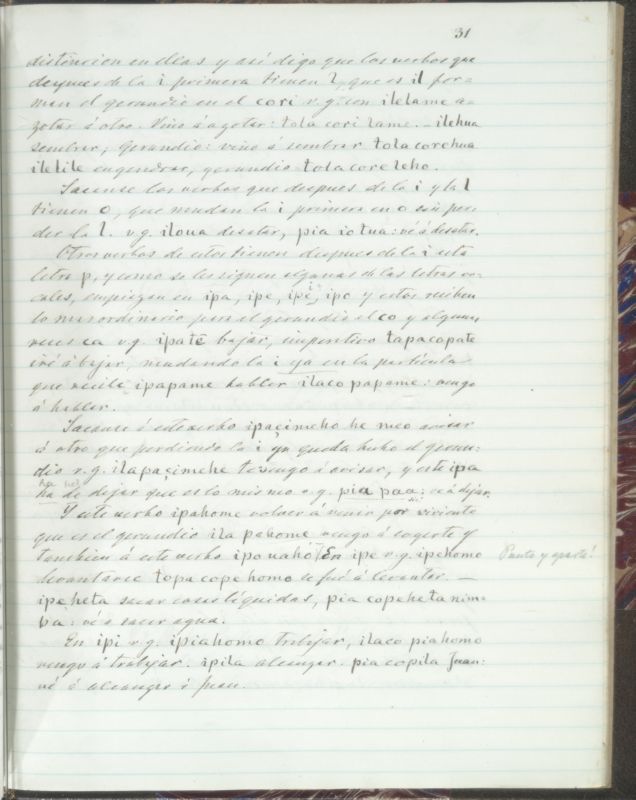 31
distincion en ellas y asi digo que los verbos que
despues de la i primera tienen l, que es il for=
man el gerundio en el cori v.g. con ilelame a=
zotar á otro. Vino á azotar: tola cori lame. - ilehua
sembrar, Gerundio: vino á sembrar tolacorehua
ilelile engendrar, gerundio tolacoreleho.
Sacanse los verbos que despues de la i y la l
tienen o, que mudan la i primera en o sin per=
der la l. v.g. iloua desatar, pia iotua: vé á desatar.
Otros verbos de estos tienen despues de la i esta
letra p, y como se les siguen algunas de las letras vo=
cales, empiezan en ipa, ipe, ipi, ipo y estos reciben
lo mas ordinario para el gerundio el co y algunas
veces ca v.g. ipatē bajar, imperativo tapacopate
iré á bajar, mudando la i ya en la particula
que recibe ipapame hablar ilaco papame: vengo
á hablar.
Sacase á este verbo ipaçimeho he meo avisar
á otro que perdiendo la i ya queda hecho el gerun=
dio v.g. ilapaçimehe te vengo á avisar, y este ipa
ha de dejar que es lo mismo v.g. pia paa: vé á dejar.
Y este verbo ipahome volver á venir por viviente
que es el gerundio ila pahome vengo á cogerte y
tambien á este verbo ipouahó. En ipe v.g. ipehomo
levantarse topa copehomo se fué á levantar. -
ipeheta sacar cosas líquidas, pia copehetanim=
ba: vé á sacar agua.
En ipi v.g. ipiahomo trabajar, ilaco piahomo
vengo á trabajar. ipila alcanzar. pia copila Juan:
vé á alcanzar á Juan.
Punto y aparte!